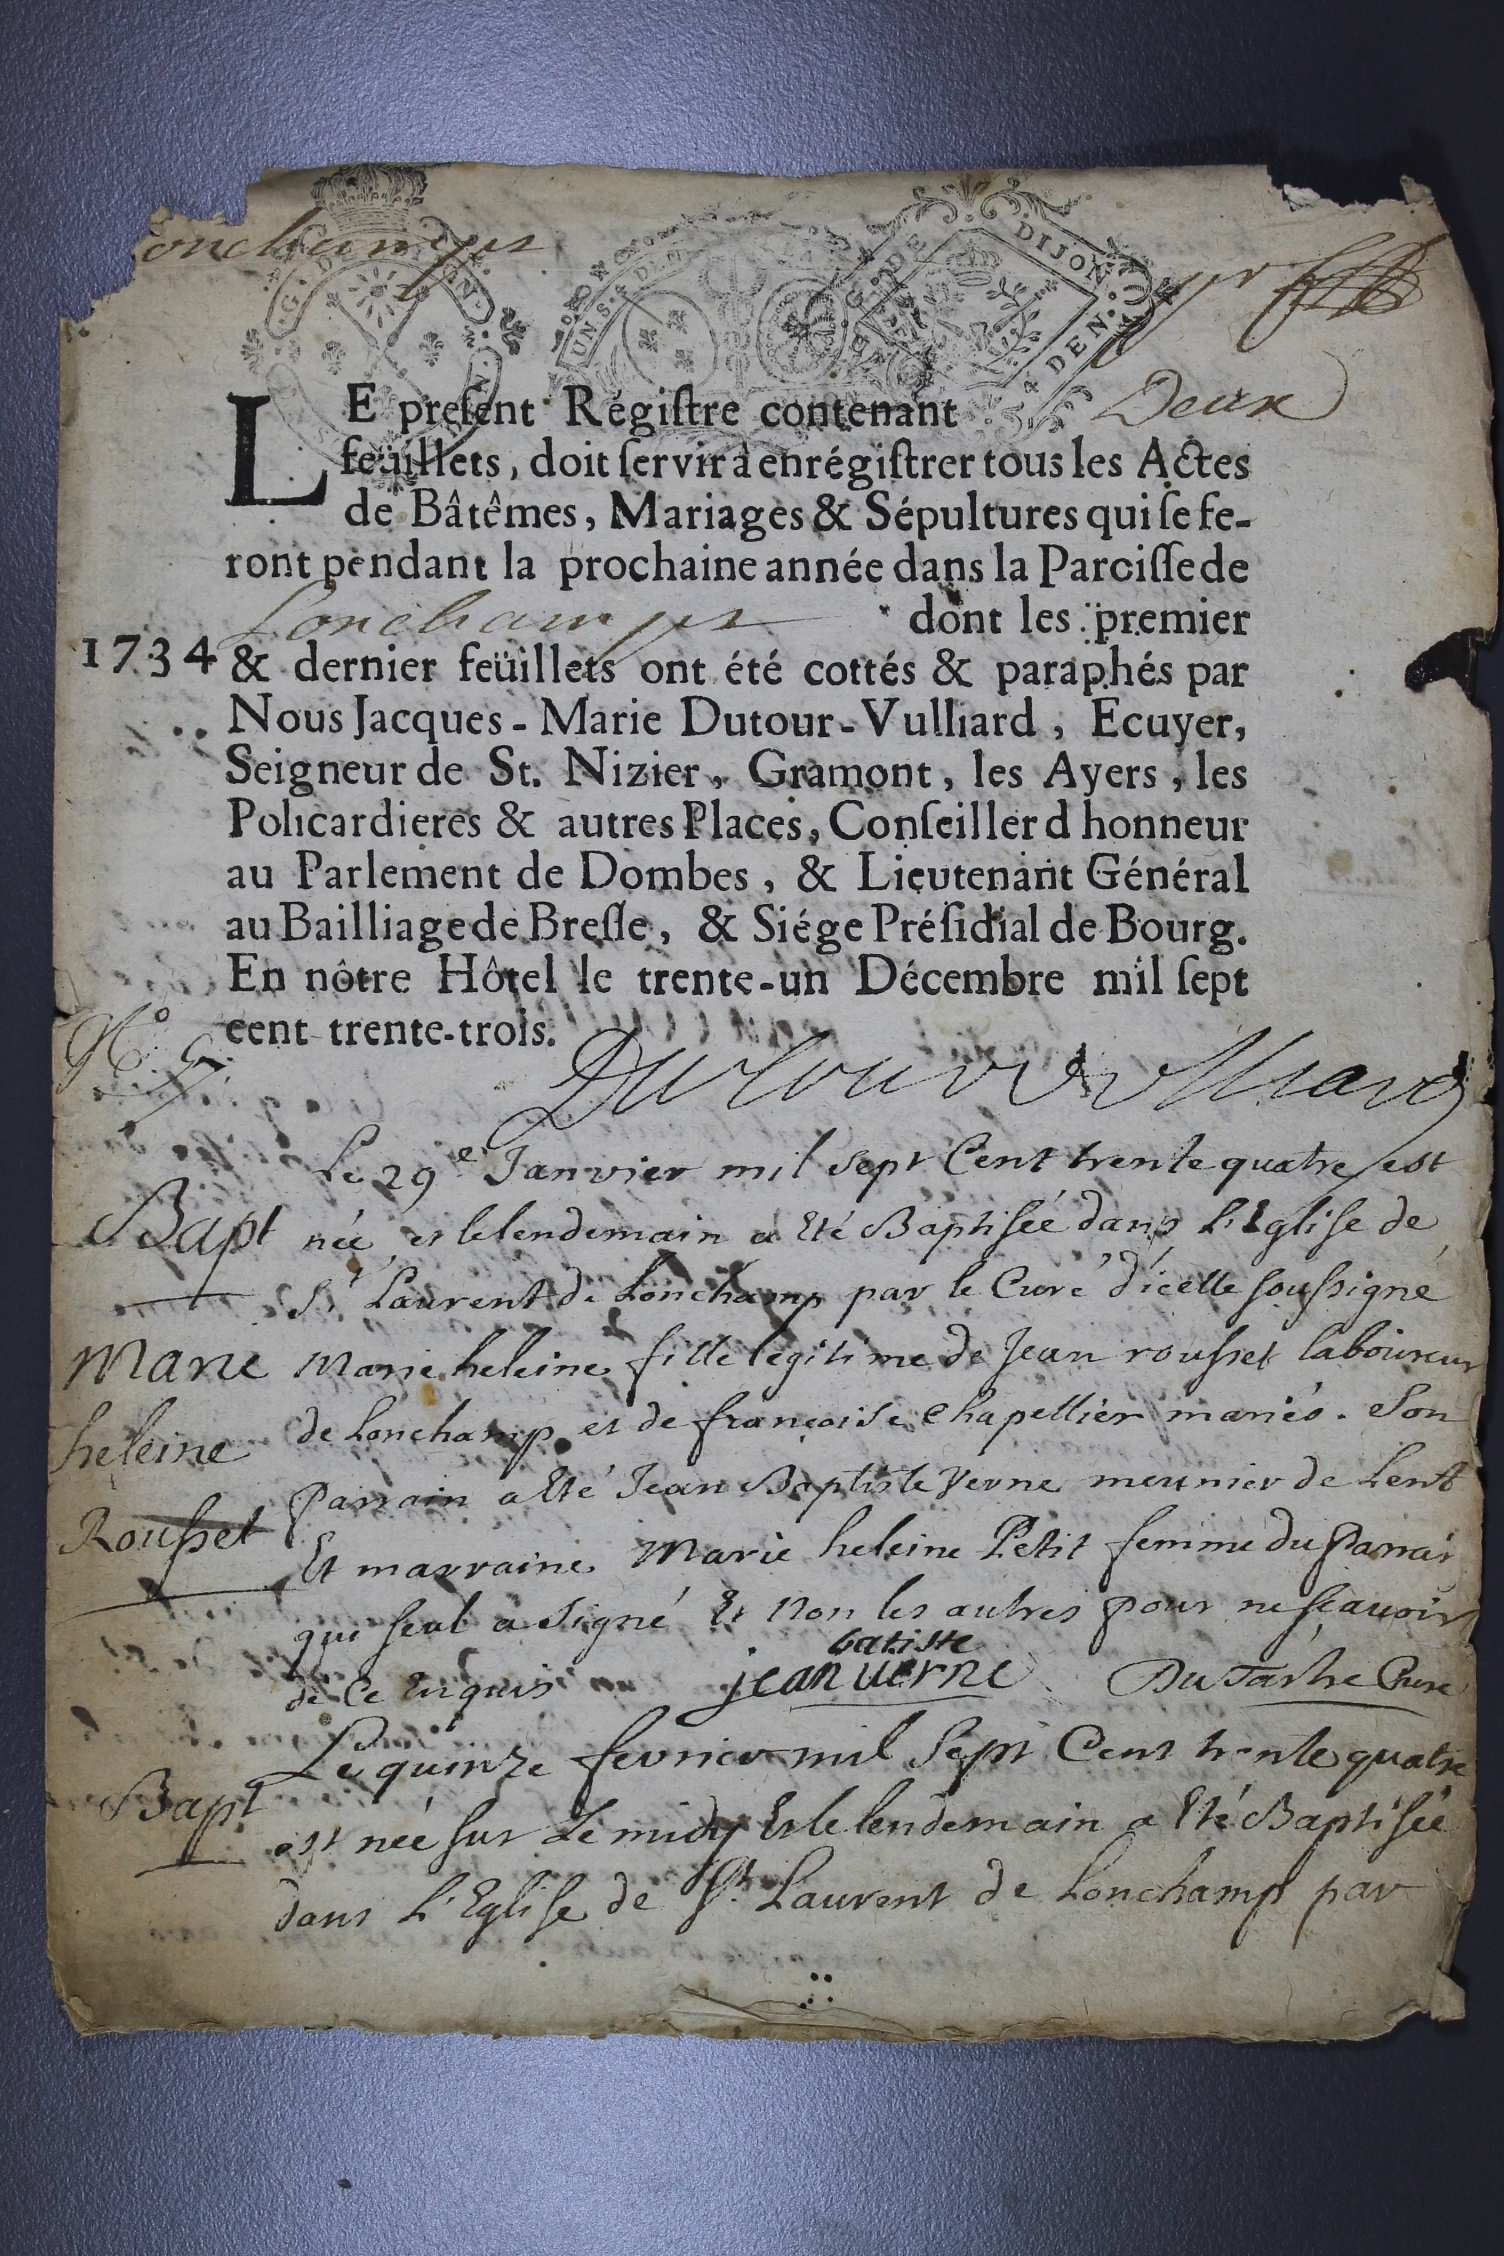 onchamps
G. DE DIJON
UN S. 4 DEN
4 DEN.
pr
LE present Régistre contenant Deux
feüillets, doit servir à enrégistrer tous les Actes
de Bâtêmes, Mariages & Sépultures qui se fe-
ront pendant la prochaine année dans la Paroisse de
Lonchamps dont les premier
1734 & dernier feüillets ont été cottés & paraphés par
Nous Jacques-Marie Dutour-Vulliard, Ecuyer,
Seigneur de St. Nizier, Gramont, les Ayers, les
Policardieres & autres Places, Conseiller d honneur
au Parlement de Dombes, & Lieutenant Général
au Bailliage de Bresse, & Siége Présidial de Bourg.
En nôtre Hôtel le trente-un Décembre mil sept
cent trente-trois.
Dutour Vulliard
Le 29e Janvier mil sept Cent trente quatre est
Bapt née et le lendemain a Eté Baptisée dans L'Eglise de
St Laurent de Lonchamp par le Curé d'icelle soussigné
Marie Marie heleine fille legitime de Jean rousset laboureur
heleine de Lonchamp et de françoise Chapellier mariés. Son
Parrain a Eté Jean Baptiste Verne meunier de Lent
Rousset Et marraine Marie heleine Petit femme du Parrai
qui seul a signé Et Non les autres pour ne sçavoir
de Ce Enquis batiste
jean verne Dutartre Curé
Le quinze fevrier mil Sept Cent trente quatre
Bapt est née sur Le midy Et le lendemain a Eté Baptisée
dans L'Eglise de St Laurent de Lonchamp par